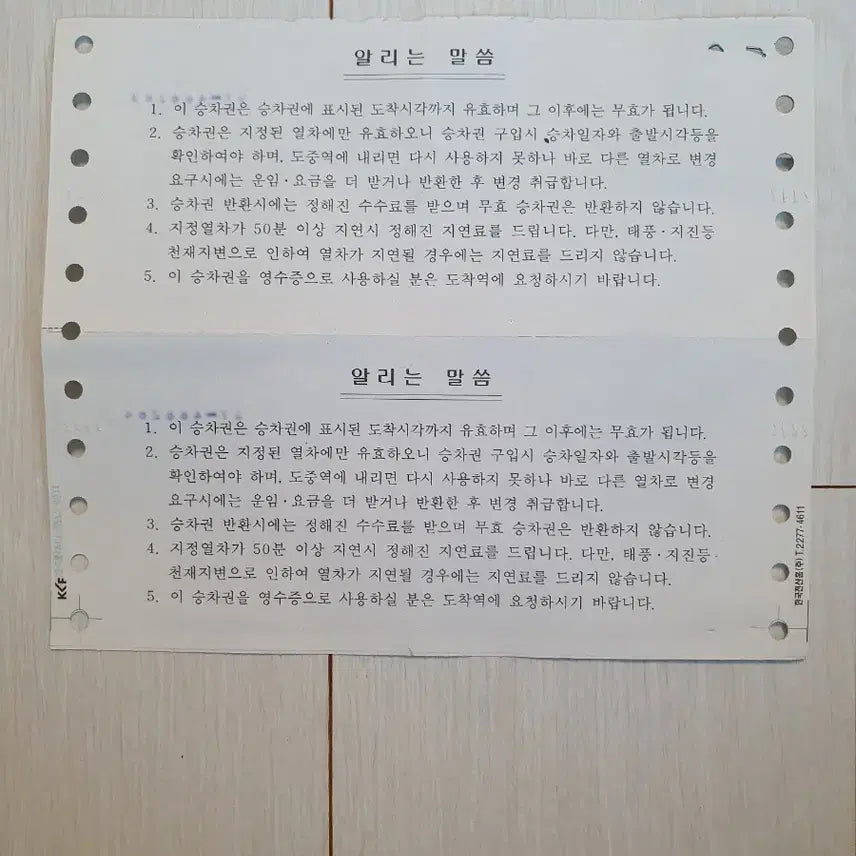 알리는 말씀
1. 이 승차권은 승차권에 표시된 도착시각까지 유효하며 그 이후에는 무효가 됩니다.
2. 승차권은 지정된 열차에만 유효하오니 승차권 구입시 승차일자와 출발시각등을
확인하여야 하며, 도중역에 내리면 다시 사용하지 못하나 바로 다른 열차로 변경
요구시에는 운임·요금을 더 받거나 반환한 후 변경 취급합니다.
3. 승차권 반환시에는 정해진 수수료를 받으며 무효 승차권은 반환하지 않습니다.
4. 지정열차가 50분 이상 지연시 정해진 지연료를 드립니다. 다만, 태풍·지진등
천재지변으로 인하여 열차가 지연될 경우에는 지연료를 드리지 않습니다.
5. 이 승차권을 영수증으로 사용하실 분은 도착역에 요청하시기 바랍니다.
알리는 말씀
1. 이 승차권은 승차권에 표시된 도착시각까지 유효하며 그 이후에는 무효가 됩니다.
2. 승차권은 지정된 열차에만 유효하오니 승차권 구입시 승차일자와 출발시각등을
확인하여야 하며, 도중역에 내리면 다시 사용하지 못하나 바로 다른 열차로 변경
요구시에는 운임·요금을 더 받거나 반환한 후 변경 취급합니다.
3. 승차권 반환시에는 정해진 수수료를 받으며 무효 승차권은 반환하지 않습니다.
4. 지정열차가 50분 이상 지연시 정해진 지연료를 드립니다. 다만, 태풍·지진등
천재지변으로 인하여 열차가 지연될 경우에는 지연료를 드리지 않습니다.
5. 이 승차권을 영수증으로 사용하실 분은 도착역에 요청하시기 바랍니다.
한국전산폼(주) T.2277-4611